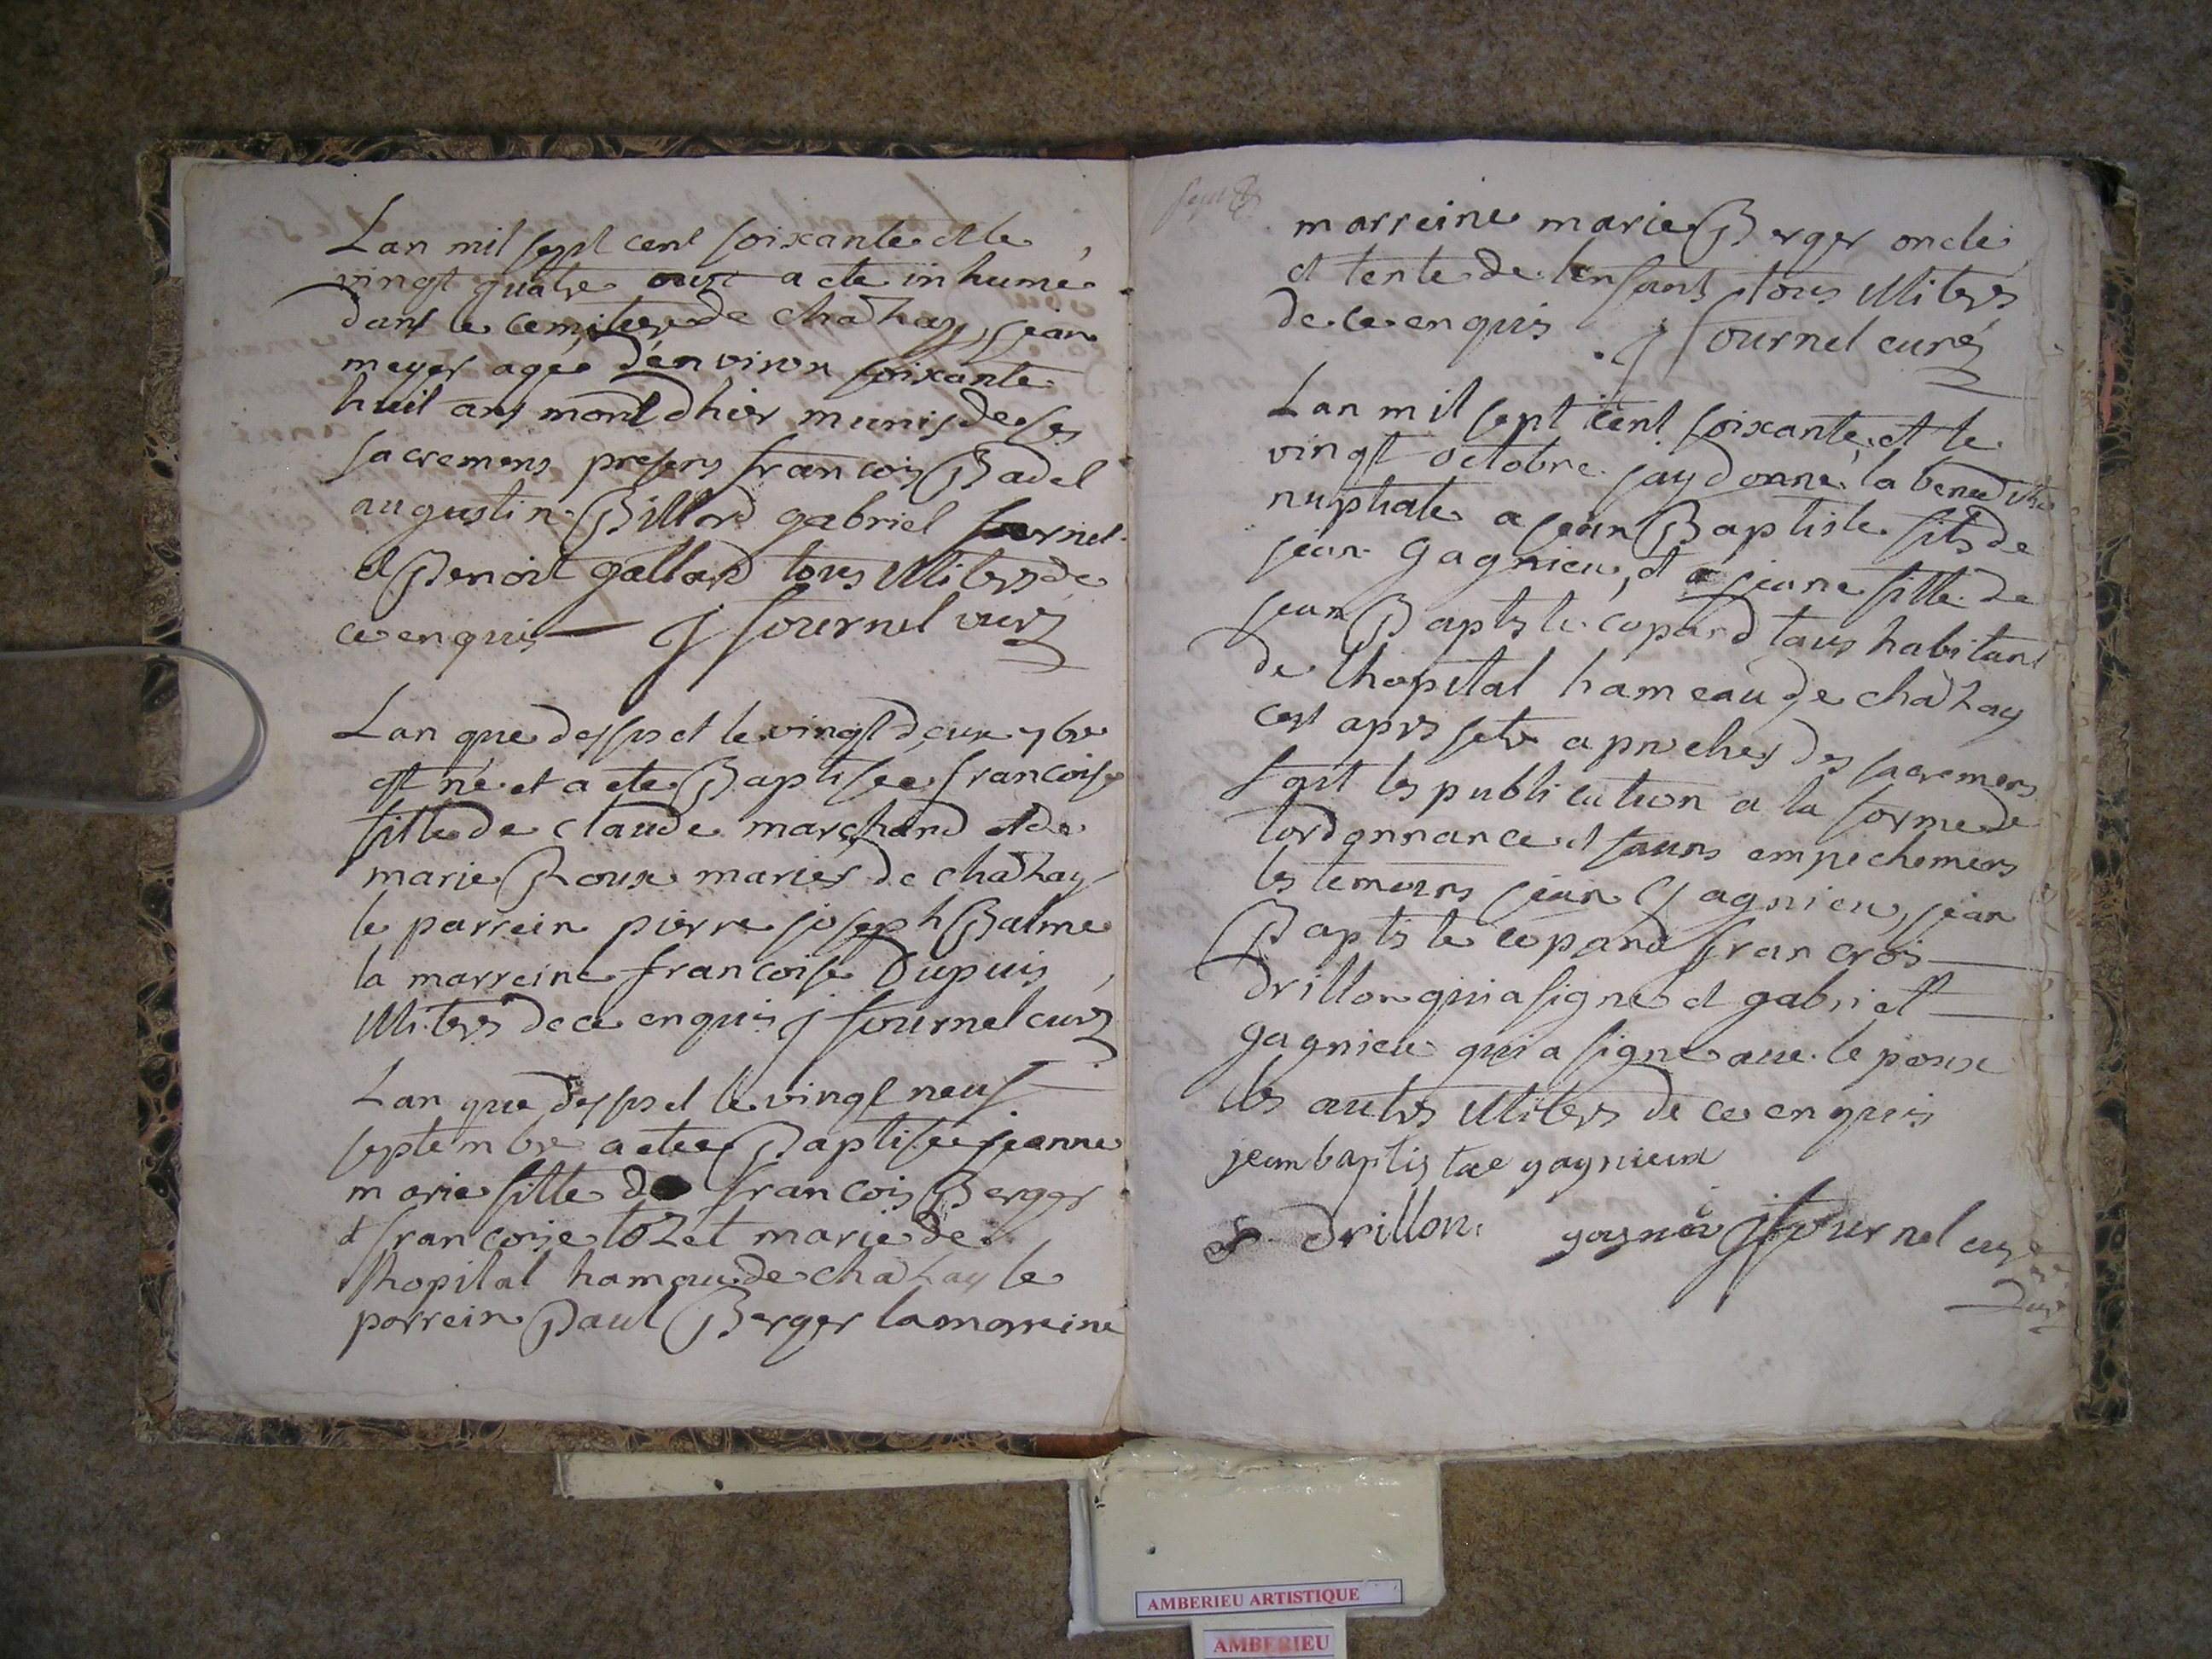 Lan mil sept cent soixante et le
vingt quatre oust a ete inhumé
dans le cemitiere de chaZay, jean
meyer agée d'environ soixante
huit ans mort dhier munis de ses
sacremens presens francois Badel
augustin Billard gabriel fournel
et Benoit gallard tous illiteres de
ce enquis J fournel curé
Lan que dessus et le vingt deux 7bre
est né et a ete Baptisée francoise
fille de claude marchand et de
marie Roux mariés de chaZay
le parrein pierre joseph Balme
la marreine francoise Dupuis
illiteres de ce enquis J fournel curé
Lan que dessus et le vingt neuf
septembre a etee Baptisée jeanne
marie fille de francois Berger
et francoise loZet marie de
lhopital hamau de chaZay le
parrein Paul Berger la marreine
marreine marie Berger oncle
et tente de lenfant tous illiteres
de ce enquis J fournel curé
Lan mil sept cent soixante et le
vingt octobre jay donné la
nuptiale a jean Baptiste fils de
jean gagnieu, et a jeane fille de
jean Baptiste copard tous habitant
de lhopital hameau de chaZay
cest apres setre aprocher des sacremens
fait les publication a la forme de
lordonnance et sauns empechemens
les temoins jean Gagnieu, jean
Baptiste copard francois
drillon qui a signe et gabriel
gagnieu qui a signe avec lepoux
les autres illiteres de ce enquis
jeanbaptis tae gagnieux
drillon J fournel curé
AMBERIEU ARTISTIQUE
AMBERIEU